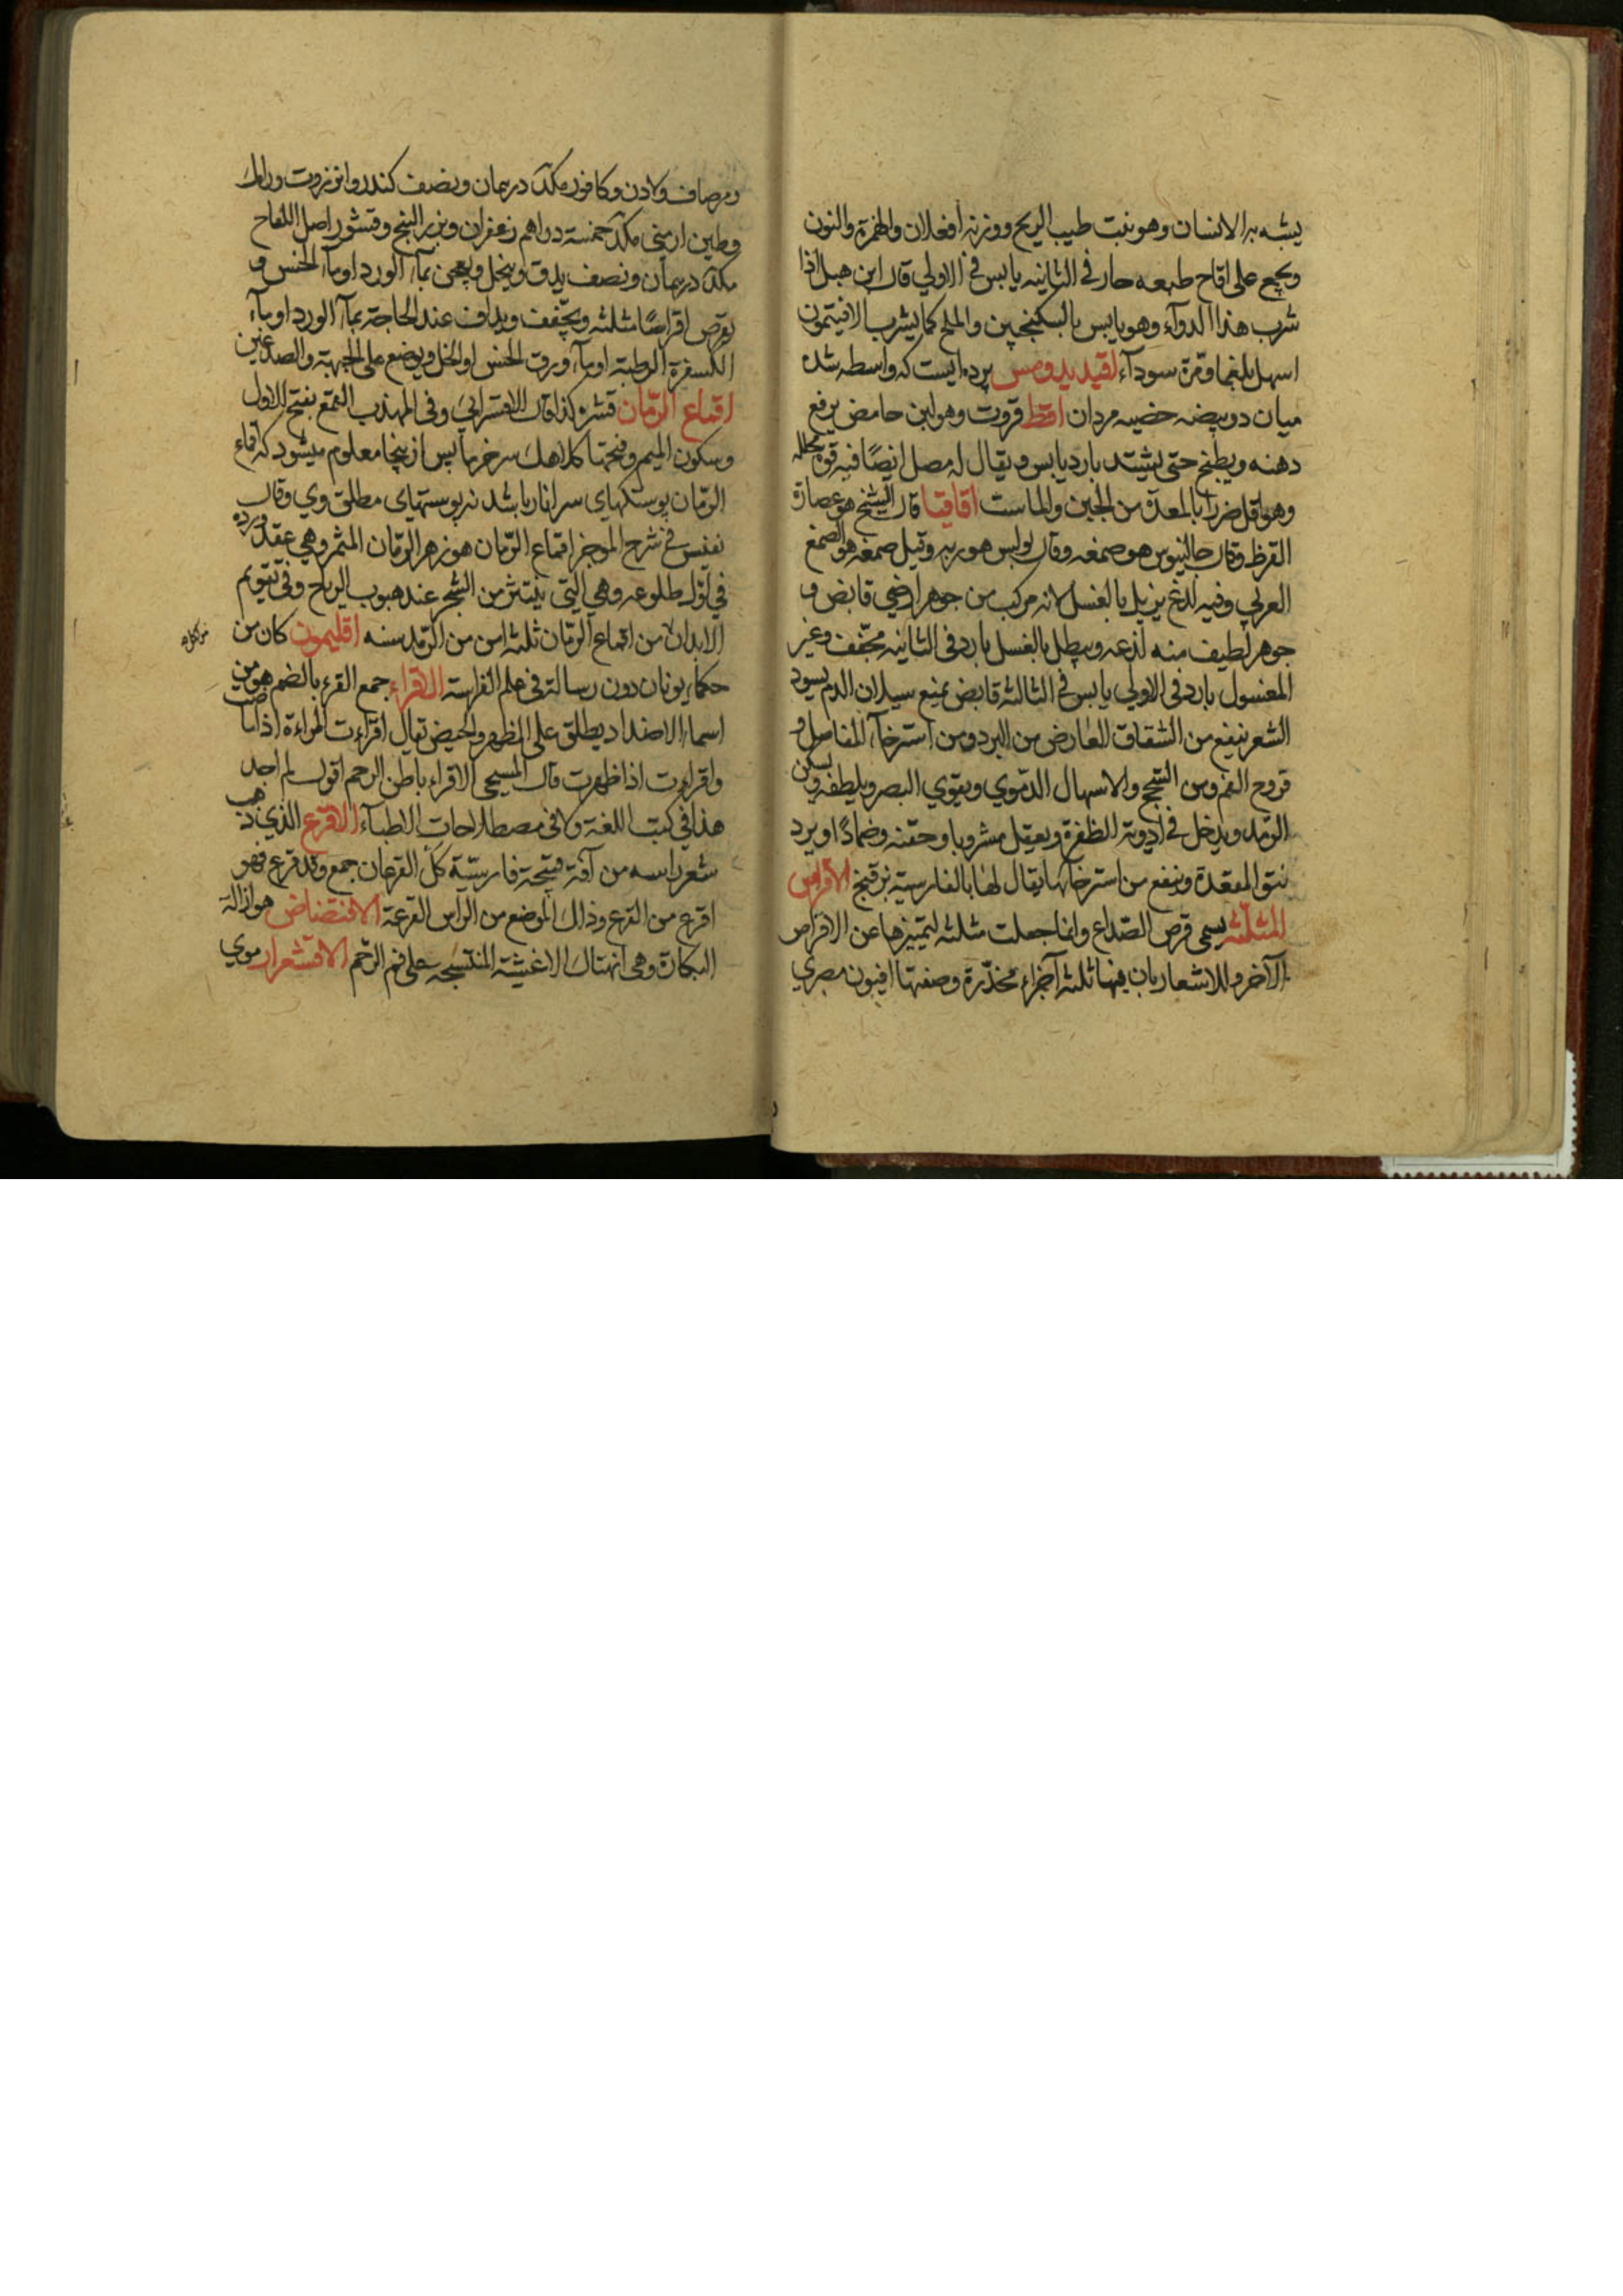 يشبه به الانسان وهو نبت طيب الريح ووزنه افعلان والهمزة والنون
ويجمع على اقاح طبعه حار في الثانيه يابس في الاولي قال ابن هبل اذا
شرب هذا الدوآء وهو يابس بالسكنجبين والملح كما يشرب الافتيمون
اسهل بلغما ومرة سودآء اقيديدومس پرده ايست كه واسطه شده
ميان دو بيضه خصيه مردان اقط قروت وهو لبن حامض يرفع
دهنه ويطبخ حتى يشتد بارد يابس ويقال له مصل ايضًا فيه قوة محلله
وهو اقل ضررا بالمعدة من الجبن والماست اقاقيا قال الشيخ هو عصارة
القرظ وقال جالينوس هو صمغه وقال بولس هو ربه وقيل صمغه هو الصمغ
العربي وفيه لذع يزيل بالغسل لانه مركب من جوهر ارضي قابض و
جوهر لطيف منه لذعه ويبطل بالغسل بارد في الثانيه مجفف وغير
المغسول بارد في الاولي يابس في الثالثه قابض يمنع سيلان الدم يسود
الشعر ينفع من الشقاق العارض من البرد ومن استرخآء المفاصل و
قروح الفم ومن السحج والاسهال الدموي ويقوي البصر ويلطفه ويسكن
الرمد ويدخل في ادوية الظفرة ويعقل مشروبا وحقنه وضمادًا ويرد
نتو المقعدة وينفع من استرخآئها يقال لها بالفارسية الاقراص
المثلثه يسمى قرص الصداع وانما جعلت مثلثه لتميزها عن الاقراص
الآخر وللاشعار بان فيها ثلثه آجزاء مخدّرة وصفتها افيون مصري
ومرصاف ولادن وكافور مكد درهمان ونصف كندر وانزروت ورامك
وطين ارمني مكد خمسة دراهم زعفران وبزر البنج وقشور اصل اللفاح
مكد درهمان ونصف يدق وينخل ويعجن بمآء الورد اوبمآء الخس و
يقرص اقراصًا مثلثه ويجفف ويداف عند الحاجة بمآء الورد اوبمآء
الكسفرة الرطبة اوبمآء ورق الخس اوالخل ويوضع على الجبهة والصدغين
اقماع الرمان قشره كذا قال الاقسرائي وفي المهذب القمع بفتح الاول
وسكون الميم وفتحها كلاهك سر خرما پس ازينجا معلوم ميشود كه اقماع
الرمان پوستكهاى سر انار باشد نه پوستهاى مطلق وي وقال
نفيس في شرح الموجز اقماع الرمان هو زهر الرمان المثمر وهي عقده
في اول طلوعه وهي التي ينتثر من الشجر عند هبوب الرياح وفي تقويم
الابدان من اقماع الرمان ثلثه امن من الرمد سنه اقليمون كان من
حكمآء يونان دون رسالة في علم الفراسة الاقراء جمع القرء بالضم هو من
اسماء الاضداد يطلق على الطهر والحيض تقال اقراءت المراءة اذا حاضت
واقراءت اذا طهرت قال المسيحي الاقراء باطن الرحم اقول لم اجد
هذا في كتب اللغة ولا في مصطلاحات الاطبآء الاقرع الذي ذهب
شعر راسه من آفة فتحة فارسيّة كل القرعان جمع وقد قرع فهو
اقرع من القرع وذلك الموضع من الراس القرعة الافتضاض هو ازالة
البكارة وهي انهتاك الاغشية المنتسجة على فم الرحم الاقشعرار موي